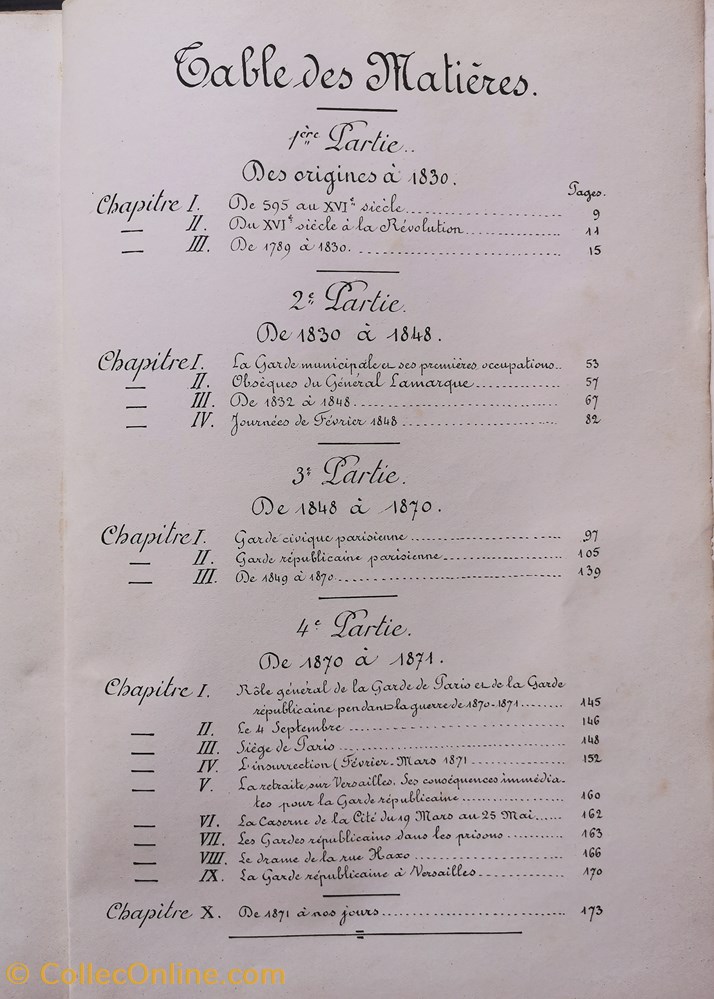 Table des Matières.
1ère Partie.
Des origines à 1830.
Pages.
Chapitre I. De 595 au XVIe siècle 9
— II. Du XVIe siècle à la Révolution 11
— III. De 1789 à 1830. 15
2e Partie.
De 1830 à 1848.
Chapitre I. La Garde municipale et ses premières occupations 53
— II. Obsèques du Général Lamarque 57
— III. De 1832 à 1848 67
— IV. Journées de Février 1848 82
3e Partie.
De 1848 à 1870.
Chapitre I. Garde civique parisienne 97
— II. Garde républicaine parisienne 105
— III. De 1849 à 1870 139
4e Partie.
De 1870 à 1871.
Chapitre I. Rôle général de la Garde de Paris et de la Garde
républicaine pendant la guerre de 1870-1871 145
— II. Le 4 Septembre 146
— III. Siège de Paris 148
— IV. L'insurrection (Février-Mars 1871 152
— V. La retraite sur Versailles. Ses conséquences immédia-
tes pour la Garde républicaine 160
— VI. La Caserne de la Cité du 19 Mars au 25 Mai 162
— VII. Les Gardes républicains dans les prisons 163
— VIII. Le drame de la rue Haxo 166
— IX. La Garde républicaine à Versailles 170
Chapitre X. De 1871 à nos jours 173
© CollecOnline.com